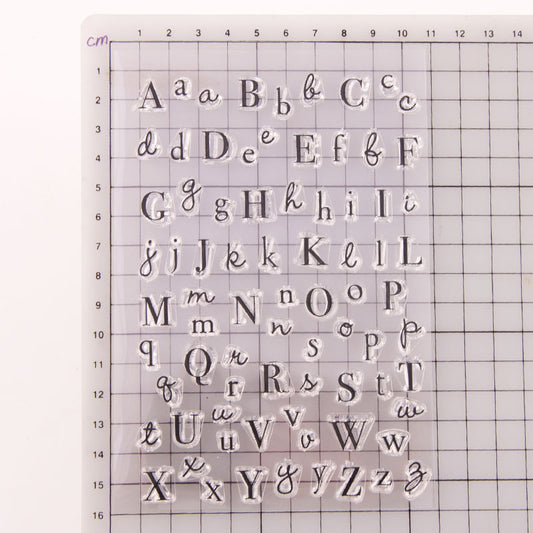 1 2 3 4 5 6 7 8 9 10 11 12 13 14
cm
1
2
3
4
5
6
7
8
9
10
11
12
13
14
15
16
A a a B b b C c c
d d D e e E f f F
G g g H h h i I i
j j J k k K l l L
M m m N n n O o o P
q q Q r r R s s S p t p T
t U u u V v v W w w
X x x Y y y Z z z